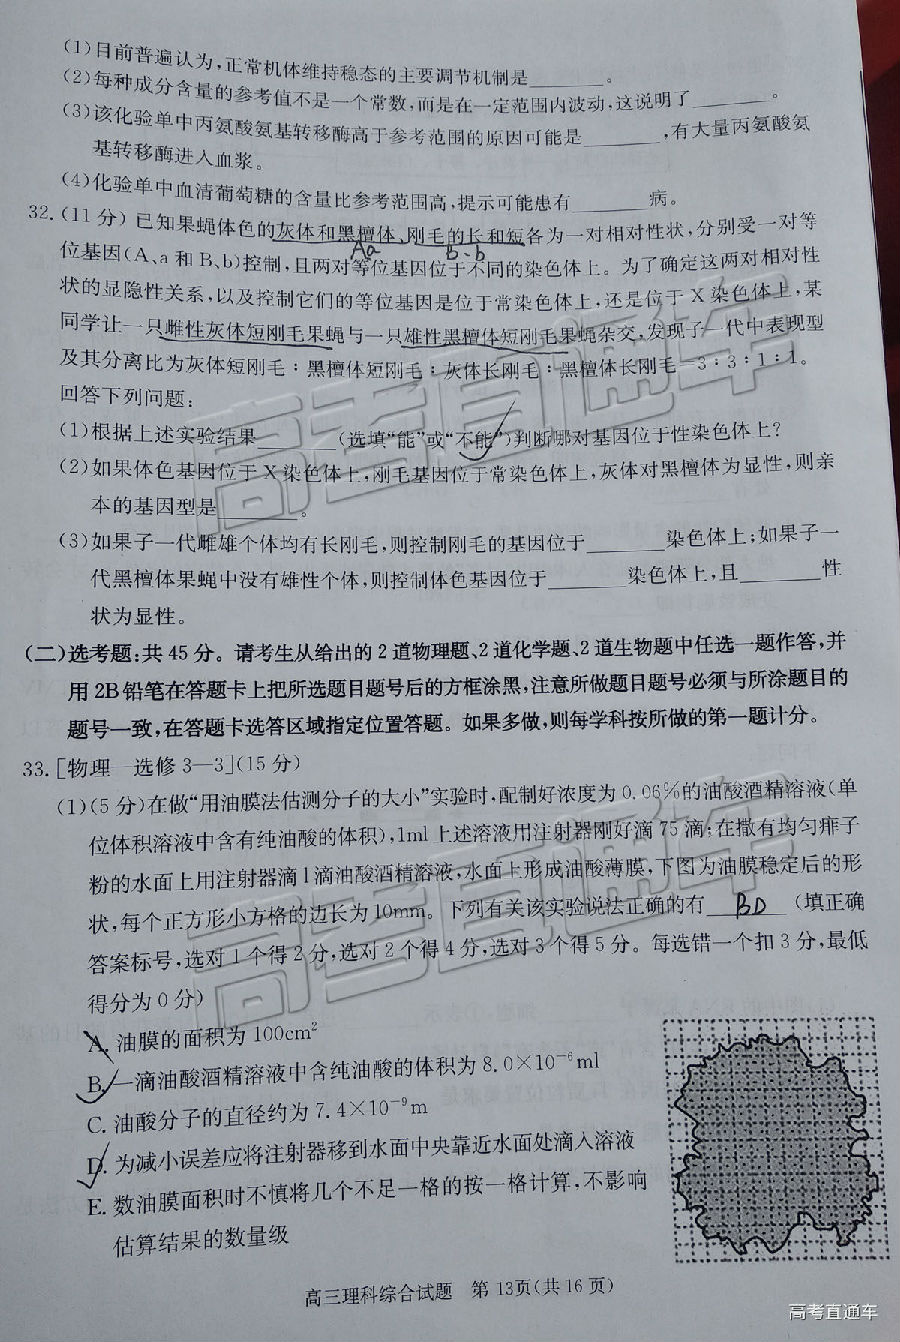 (1)目前普遍认为,正常机体维持稳态的主要调节机制是________。
(2)每种成分含量的参考值不是一个常数,而是在一定范围内波动,这说明了________。
(3)该化验单中丙氨酸氨基转移酶高于参考范围的原因可能是________,有大量丙氨酸氨
基转移酶进入血浆。
(4)化验单中血清葡萄糖的含量比参考范围高,提示可能患有________病。
32.(11分)已知果蝇体色的灰体和黑檀体、刚毛的长和短各为一对相对性状,分别受一对等
Aa B、b
位基因(A、a和B、b)控制,且两对等位基因位于不同的染色体上。为了确定这两对相对性
状的显隐性关系,以及控制它们的等位基因是位于常染色体上,还是位于X染色体上,某
同学让一只雌性灰体短刚毛果蝇与一只雄性黑檀体短刚毛果蝇杂交,发现子一代中表现型
及其分离比为灰体短刚毛:黑檀体短刚毛:灰体长刚毛:黑檀体长刚毛=3:3:1:1。
回答下列问题:
(1)根据上述实验结果________(选填“能”或“不能”)判断哪对基因位于性染色体上?
(2)如果体色基因位于X染色体上,刚毛基因位于常染色体上,灰体对黑檀体为显性,则亲
本的基因型是________。
(3)如果子一代雌雄个体均有长刚毛,则控制刚毛的基因位于________染色体上;如果子一
代黑檀体果蝇中没有雄性个体,则控制体色基因位于________染色体上,且________性
状为显性。
(二)选考题:共45分。请考生从给出的2道物理题、2道化学题、2道生物题中任选一题作答,并
用2B铅笔在答题卡上把所选题目题号后的方框涂黑,注意所做题目题号必须与所涂题目的
题号一致,在答题卡选答区域指定位置答题。如果多做,则每学科按所做的第一题计分。
33.[物理—选修3—3](15分)
(1)(5分)在做“用油膜法估测分子的大小”实验时,配制好浓度为0.06%的油酸酒精溶液(单
位体积溶液中含有纯油酸的体积),1ml上述溶液用注射器刚好滴75滴;在撒有均匀痱子
粉的水面上用注射器滴1滴油酸酒精溶液,水面上形成油酸薄膜,下图为油膜稳定后的形
状,每个正方形小方格的边长为10mm。下列有关该实验说法正确的有 BD (填正确
答案标号,选对1个得2分,选对2个得4分,选对3个得5分。每选错一个扣3分,最低
得分为0分)
A. 油膜的面积为100cm²
B. 一滴油酸酒精溶液中含纯油酸的体积为8.0×10⁻⁶ml
C. 油酸分子的直径约为7.4×10⁻⁹m
D. 为减小误差应将注射器移到水面中央靠近水面处滴入溶液
E. 数油膜面积时不慎将几个不足一格的按一格计算,不影响
估算结果的数量级
高三理科综合试题 第13页(共16页)
高考直通车
高考直通车
高考直通车